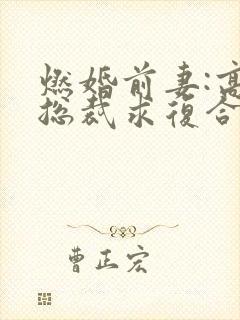 燃婚前妻:高
总裁求復合
曹正宏